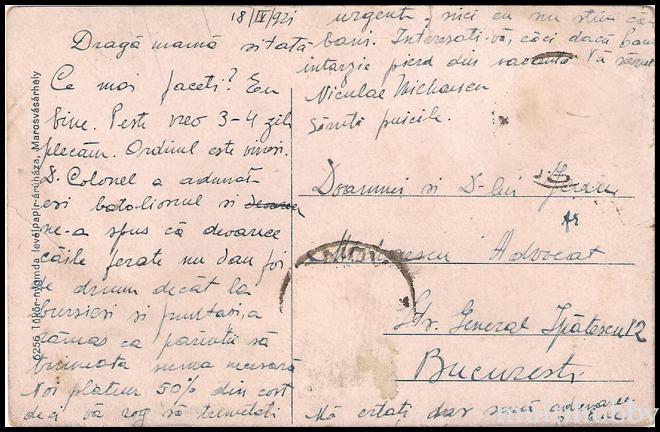 18/IV/921
Dragă mamă si tată
Ce mai faceti? Eu
bine. Peste vreo 3-4 zile
plecăm. Ordinul este vineri.
D. Colonel a adunat
eri batalionul si
ne-a spus că deoarece
căile ferate nu dau foi
de drum decât la
bursieri si
rămas ca părintii să
trimeată suma necesară
Noi platim 50% din cost
deci vă rog să trimeteti
urgent, nici eu nu stiu
bani. Interesati-vă, căci dacă bani
intarzie pierd din vacanta Vă
Niculae
Săruti puicile.
Doamnei si D-lui
Advocat
Str. General Ipătescu 12
Bucuresti
Mă ertati, dar sunt
6256 Tükör-nyomda levélpapír-áruháza, Marosvásárhely